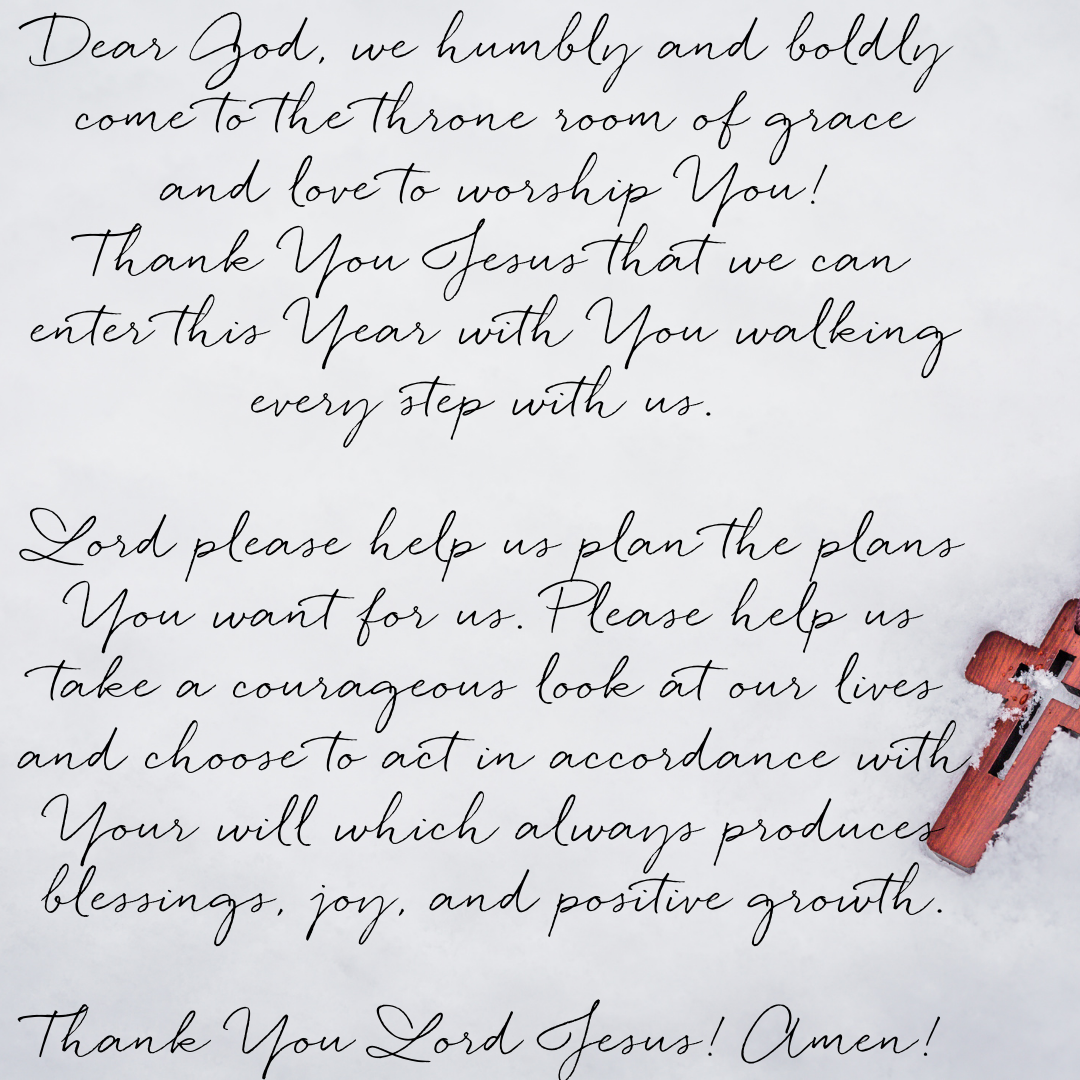 Dear God, we humbly and boldly
come to the throne room of grace
and love to worship You!
Thank You Jesus that we can
enter this Year with You walking
every step with us.
Lord please help us plan the plans
You want for us. Please help us
take a courageous look at our lives
and choose to act in accordance with
Your will which always produces
blessings, joy, and positive growth.
Thank You Lord Jesus! Amen!